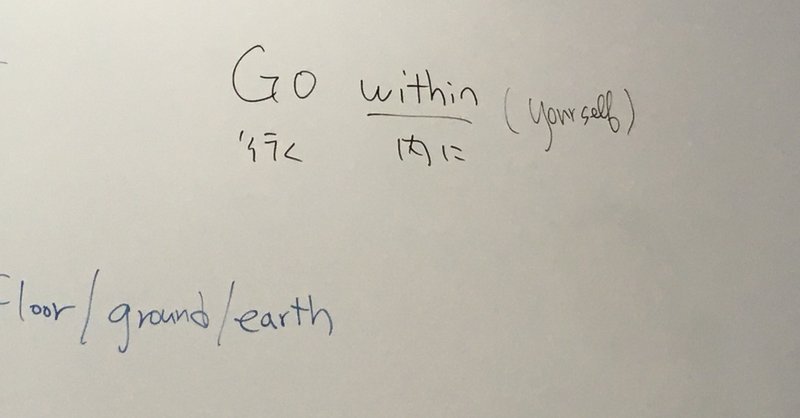 Go within (yourself)
行く 内に
floor/ground/earth